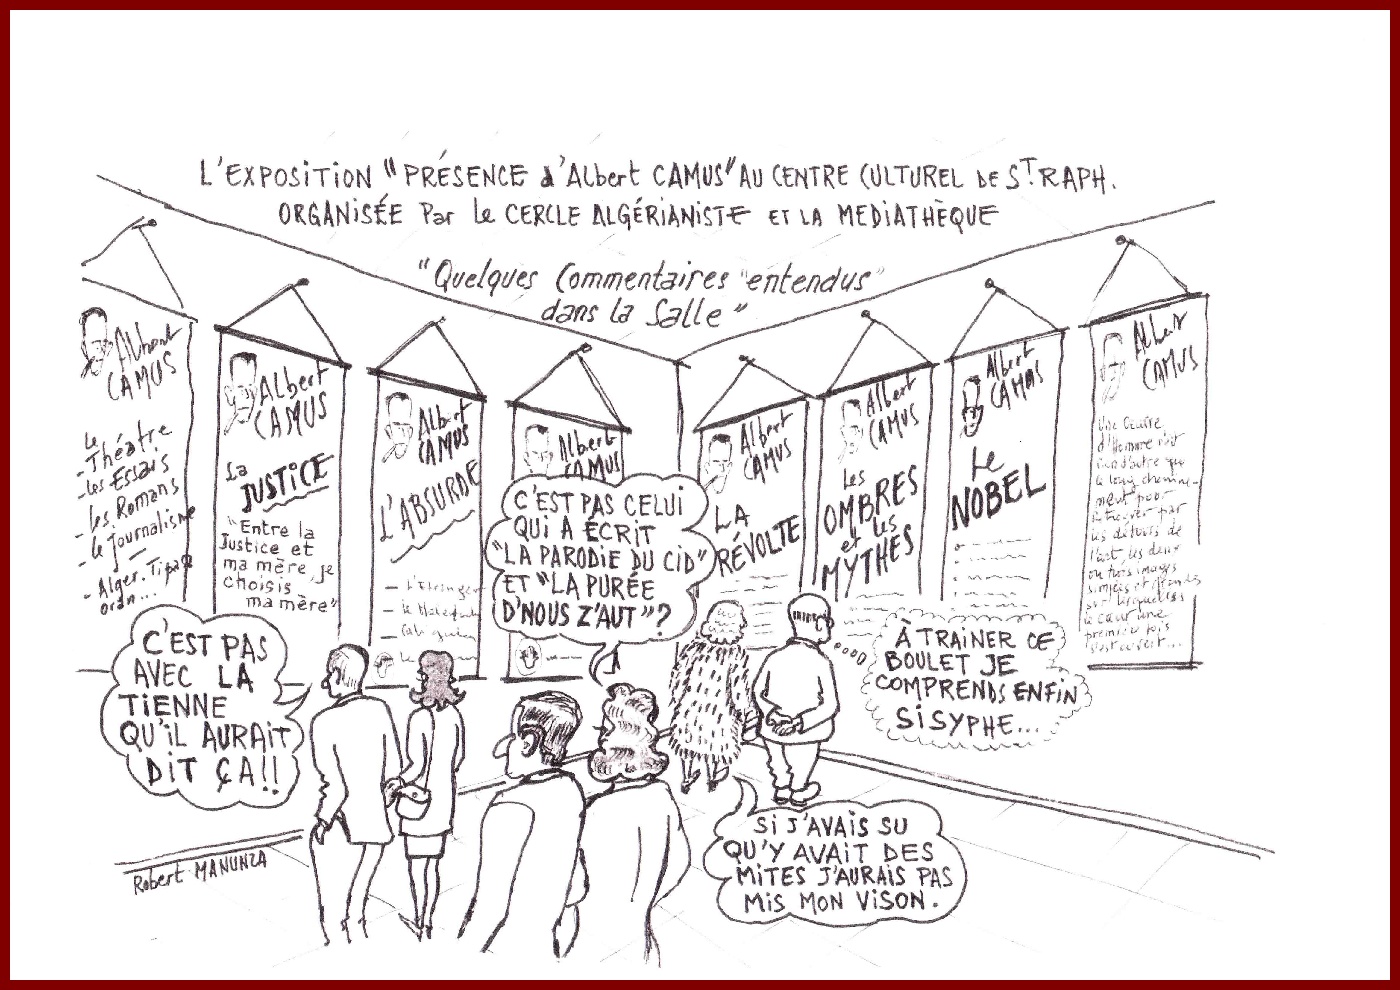 L'EXPOSITION "PRÉSENCE d'Albert CAMUS" AU CENTRE CULTUREL DE ST. RAPH.
ORGANISÉE Par le CERCLE ALGÉRIANISTE ET LA MEDIATHÈQUE
"Quelques Commentaires "entendus"
dans la Salle"
Albert
CAMUS
Le
-Théatre
-les Essais
-les Romans
-le journalisme
- Alger. Tipaza
Oran...
Albert
CAMUS
La
JUSTICE
"Entre la
Justice et
ma mère, je
choisis
ma mère"
Albert
CAMUS
L'ABSURDE
- l'Etranger
- le Malentendu
- Caligula
Albert
CAMUS
Albert
CAMUS
LA
RÉVOLTE
Albert
CAMUS
les
OMBRES
et les
MYTHES
Albert
CAMUS
Le
NOBEL
Albert
CAMUS
Une Oeuvre
d'Homme n'est
rien d'autre que
ce long chemine-
ment pour
retrouver par
les détours de
l'art, les deux
ou trois images
simples et grandes
sur lesquelles
le cœur une
première fois
s'est ouvert...
C'EST PAS
AVEC LA
TIENNE
QU'IL AURAIT
DIT ÇA!!
C'EST PAS CELUI
QUI A ÉCRIT
"LA PARODIE DU CID"
ET "LA PURÉE
D'NOUS Z'AUT"?
À TRAINER CE
BOULET JE
COMPRENDS ENFIN
SISYPHE...
SI J'AVAIS SU
QU'Y AVAIT DES
MITES J'AURAIS PAS
MIS MON VISON.
Robert MANUNZA